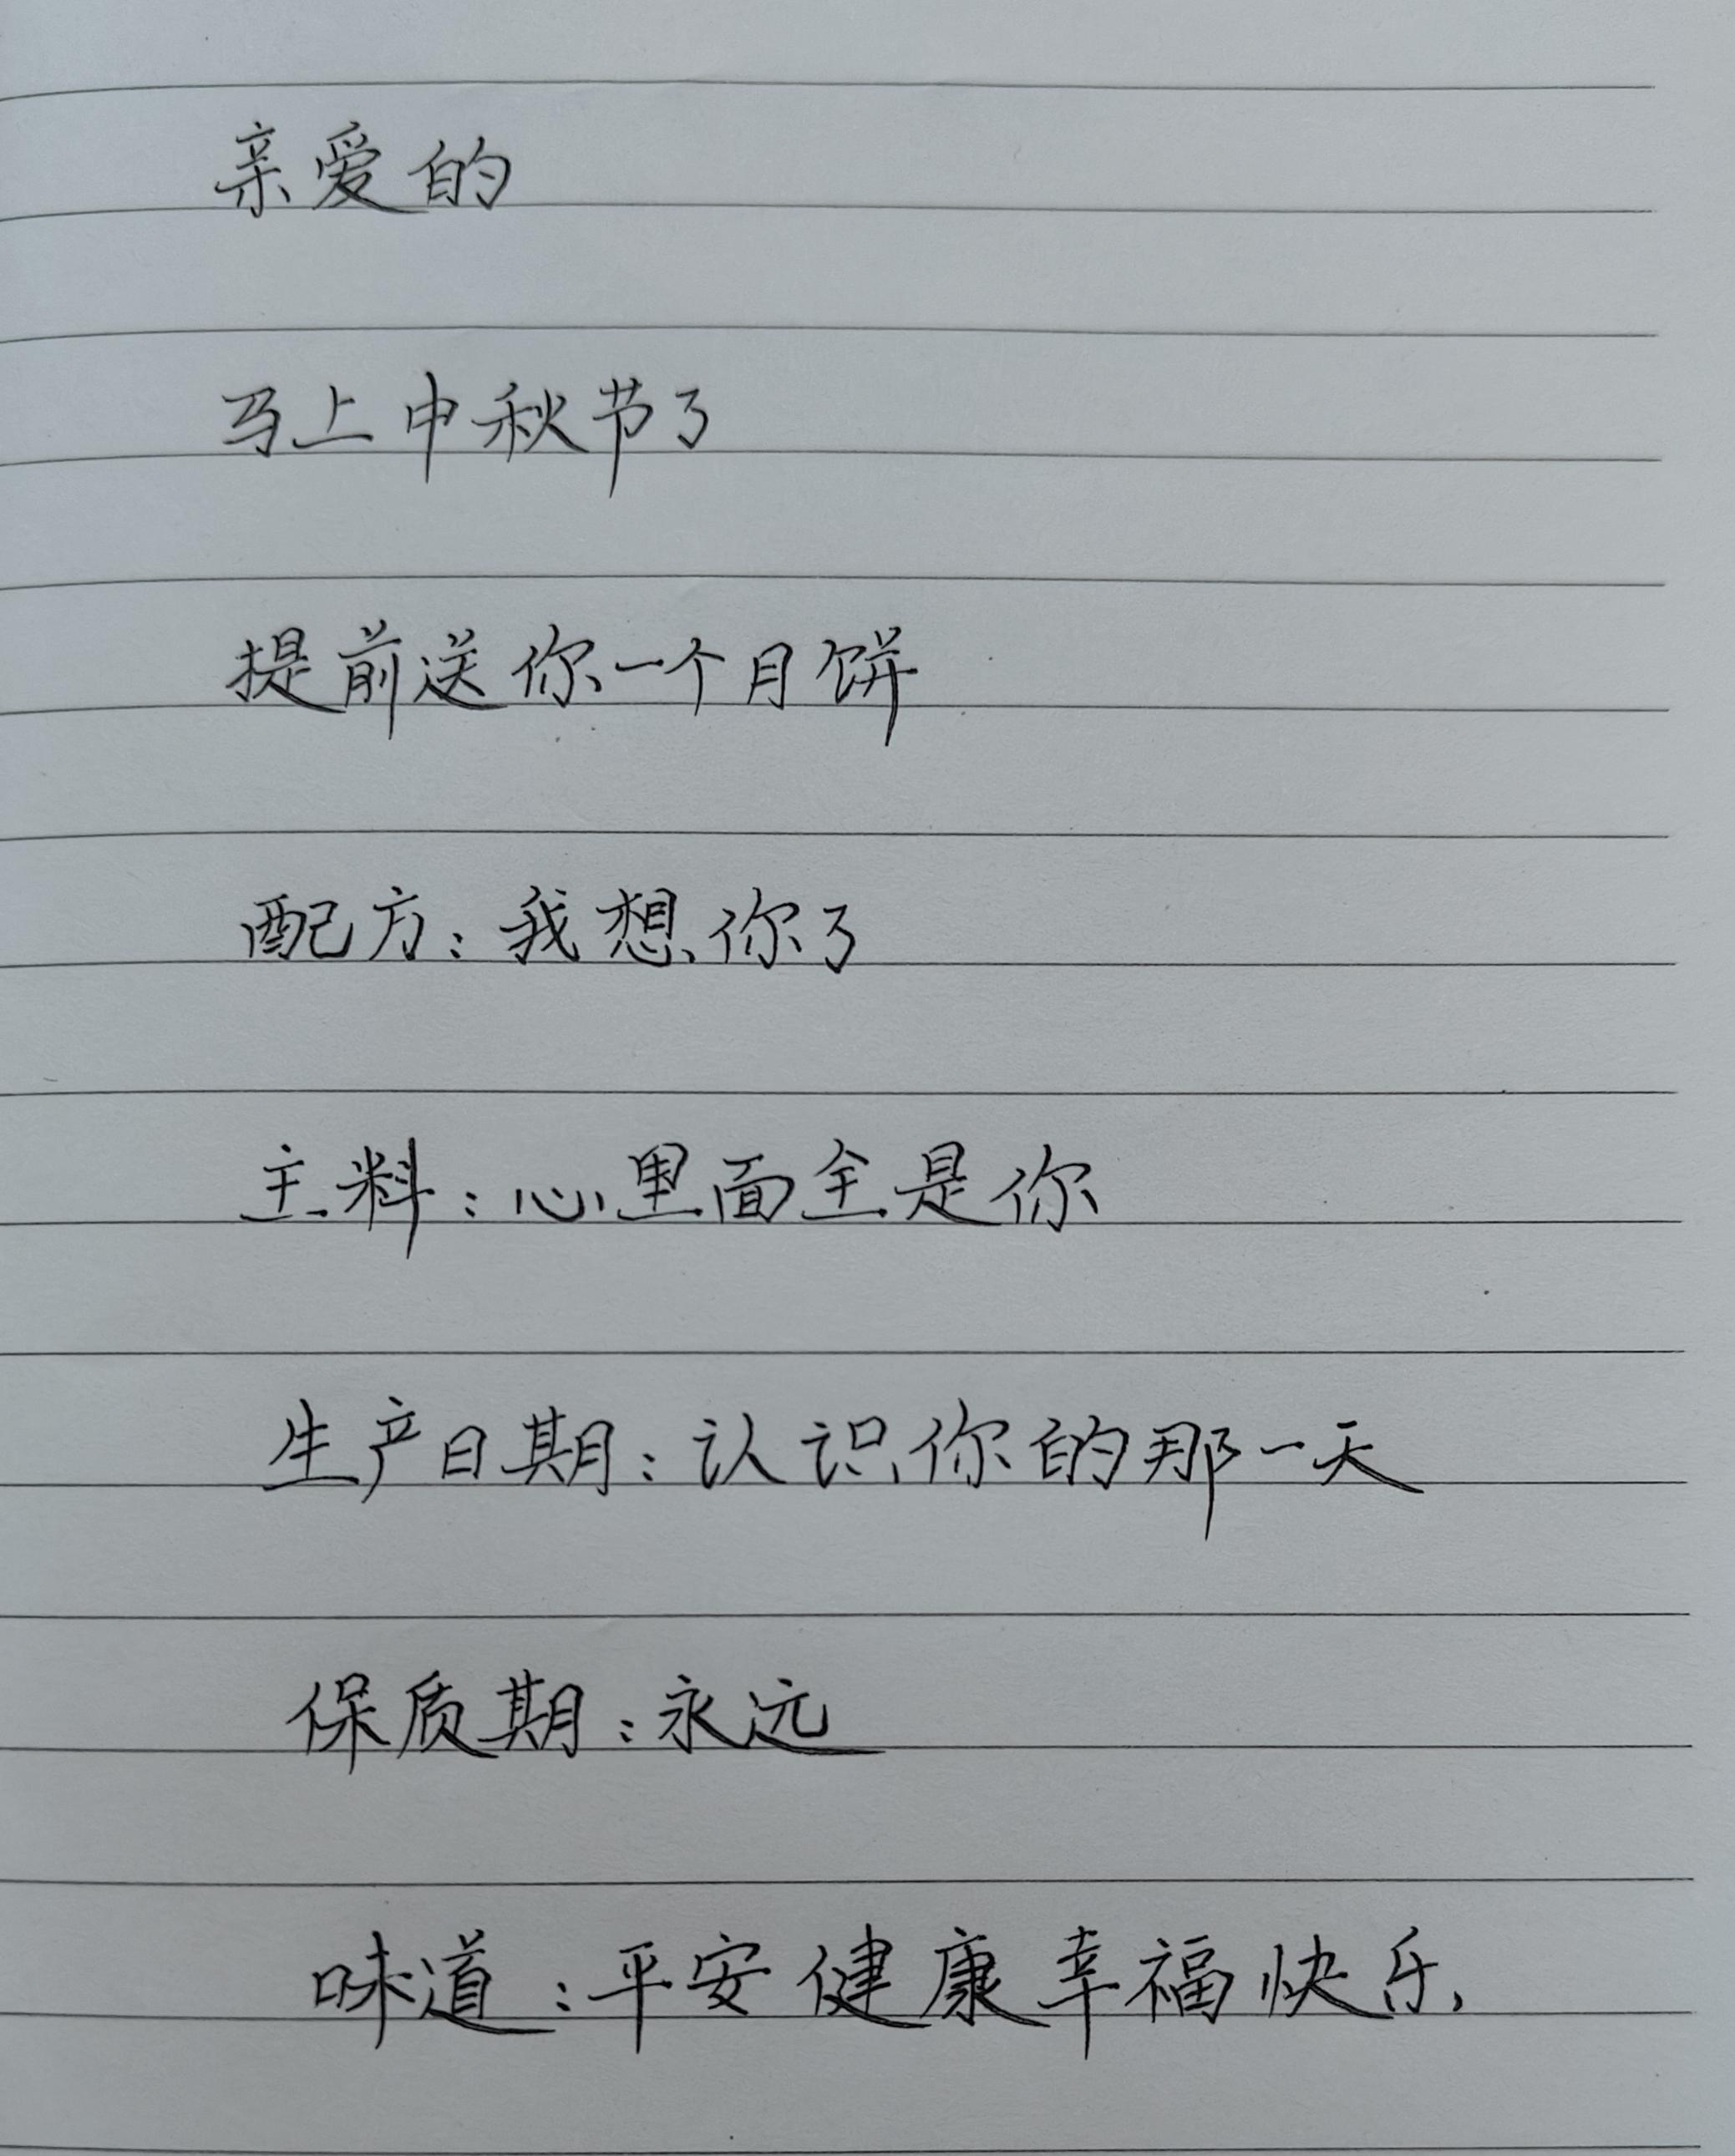 亲爱的
马上中秋节了
提前送你一个月饼
配方：我想你了
主料：心里面全是你
生产日期：认识你的那一天
保质期：永远
味道：平安健康幸福快乐